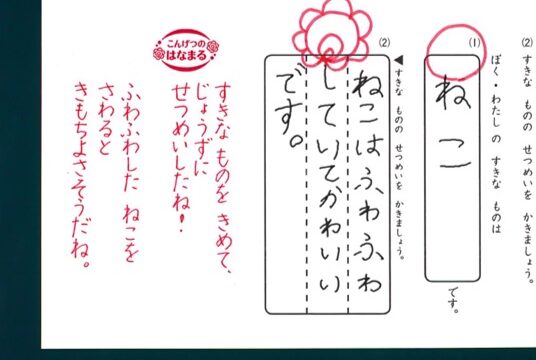 (2) すきな ものの せつめいを かきましょう。
ぼく・わたし の すきな ものは
(1)
ねこ
です。
◀すきな ものの せつめいを かきましょう。
(2)
ねこはふわふわ
していてかわいい
です。
こんげつの
はなまる
すきな ものを きめて、
じょうずに
せつめいしたね!
ふわふわした ねこを
さわると
きもちよさそうだね。